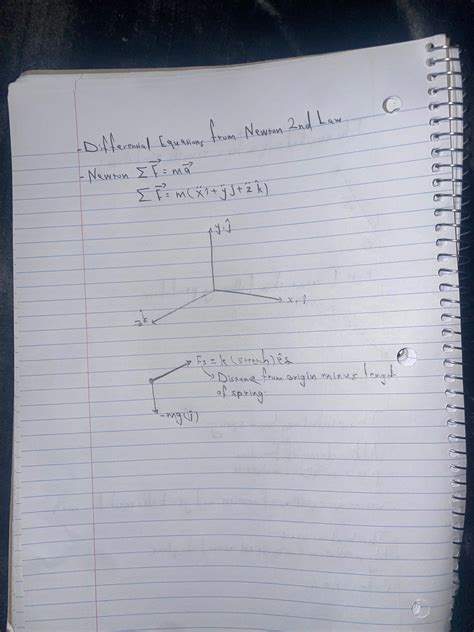 - Differential Equations from Newton 2nd Law
- Newton ΣF⃗ = ma⃗
ΣF⃗ = m(ẍî + ÿĵ + z̈k̂)
y, ĵ
x, î
z, k̂
Fs = k (stretch) ês
↳ Distance from origin minus lenght
of spring
-mg(ĵ)